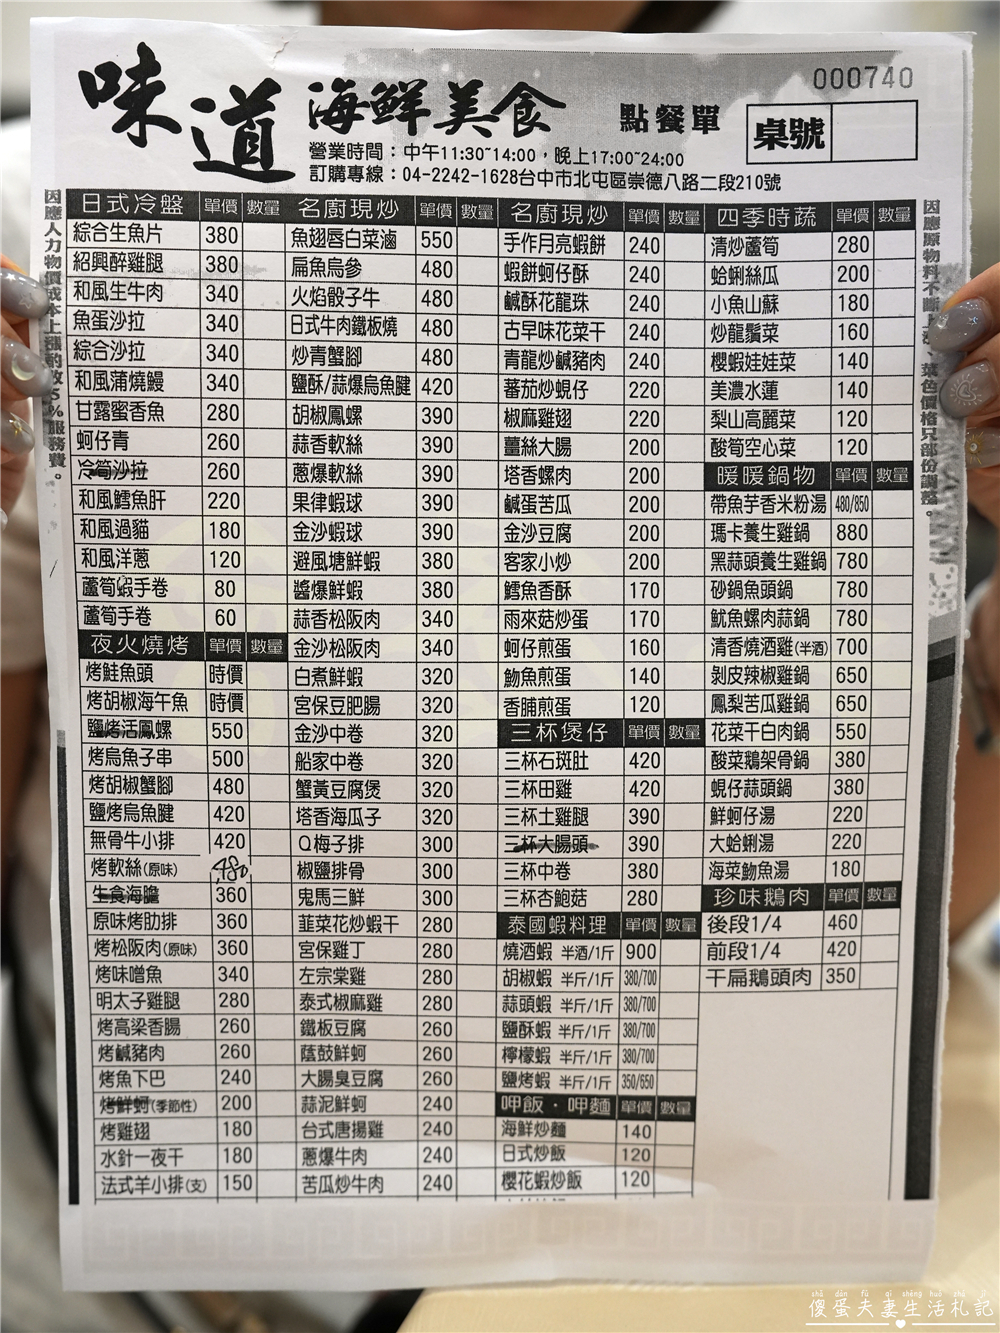 味道 海鮮美食 點餐單
000740
桌號
營業時間：中午11:30~14:00，晚上17:00~24:00
訂購專線：04-2242-1628台中市北屯區崇德八路二段210號
因應人力物價成本上漲酌收5%服務費。
日式冷盤 單價 數量
綜合生魚片 380
紹興醉雞腿 380
和風生牛肉 340
魚蛋沙拉 340
綜合沙拉 340
和風蒲燒鰻 340
甘露蜜香魚 280
蚵仔青 260
冷筍沙拉 260
和風鱈魚肝 220
和風過貓 180
和風洋蔥 120
蘆筍蝦手卷 80
蘆筍手卷 60
夜火燒烤 單價 數量
烤鮭魚頭 時價
烤胡椒海午魚 時價
鹽烤活鳳螺 550
烤烏魚子串 500
烤胡椒蟹腳 480
鹽烤烏魚腱 420
無骨牛小排 420
烤軟絲(原味) 480
生食海膽 360
原味烤肋排 360
烤松阪肉(原味) 360
烤味噌魚 340
明太子雞腿 280
烤高梁香腸 260
烤鹹豬肉 260
烤魚下巴 240
烤鮮蚵(季節性) 200
烤雞翅 180
水針一夜干 180
法式羊小排(支) 150
名廚現炒 單價 數量
魚翅唇白菜滷 550
扁魚烏參 480
火焰骰子牛 480
日式牛肉鐵板燒 480
炒青蟹腳 480
鹽酥/蒜爆烏魚腱 420
胡椒鳳螺 390
蒜香軟絲 390
蔥爆軟絲 390
果律蝦球 390
金沙蝦球 390
避風塘鮮蝦 380
醬爆鮮蝦 380
蒜香松阪肉 340
金沙松阪肉 340
白煮鮮蝦 320
宮保豆肥腸 320
金沙中卷 320
船家中卷 320
蟹黃豆腐煲 320
塔香海瓜子 320
Q梅子排 300
椒鹽排骨 300
鬼馬三鮮 300
韮菜花炒蝦干 280
宮保雞丁 280
左宗棠雞 280
泰式椒麻雞 280
鐵板豆腐 260
蔭鼓鮮蚵 260
大腸臭豆腐 260
蒜泥鮮蚵 240
台式唐揚雞 240
蔥爆牛肉 240
苦瓜炒牛肉 240
名廚現炒 單價 數量
手作月亮蝦餅 240
蝦餅蚵仔酥 240
鹹酥花龍珠 240
古早味花菜干 240
青龍炒鹹豬肉 240
蕃茄炒蜆仔 220
椒麻雞翅 220
薑絲大腸 200
塔香螺肉 200
鹹蛋苦瓜 200
金沙豆腐 200
客家小炒 200
鱈魚香酥 170
雨來菇炒蛋 170
蚵仔煎蛋 160
魩魚煎蛋 140
香脯煎蛋 120
三杯煲仔 單價 數量
三杯石斑肚 420
三杯田雞 420
三杯土雞腿 390
三杯大腸頭 390
三杯中卷 380
三杯杏鮑菇 280
泰國蝦料理 單價 數量
燒酒蝦 半酒/1斤 900
胡椒蝦 半斤/1斤 380/700
蒜頭蝦 半斤/1斤 380/700
鹽酥蝦 半斤/1斤 380/700
檸檬蝦 半斤/1斤 380/700
鹽烤蝦 半斤/1斤 350/650
呷飯．呷麵 單價 數量
海鮮炒麵 140
日式炒飯 120
櫻花蝦炒飯 120
四季時蔬 單價 數量
清炒蘆筍 280
蛤蜊絲瓜 200
小魚山蘇 180
炒龍鬚菜 160
櫻蝦娃娃菜 140
美濃水蓮 140
梨山高麗菜 120
酸筍空心菜 120
暖暖鍋物 單價 數量
帶魚芋香米粉湯 480/850
瑪卡養生雞鍋 880
黑蒜頭養生雞鍋 780
砂鍋魚頭鍋 780
魷魚螺肉蒜鍋 780
清香燒酒雞(半酒) 700
剝皮辣椒雞鍋 650
鳳梨苦瓜雞鍋 650
花菜干白肉鍋 550
酸菜鵝架骨鍋 380
蜆仔蒜頭鍋 380
鮮蚵仔湯 220
大蛤蜊湯 220
海菜魩魚湯 180
珍味鵝肉 單價 數量
後段1/4 460
前段1/4 420
干扁鵝頭肉 350
因應原物料不斷上漲、菜色價格只部份調整。
shǎ dàn fū qī shēng huó zhá jì
傻蛋夫妻生活札記